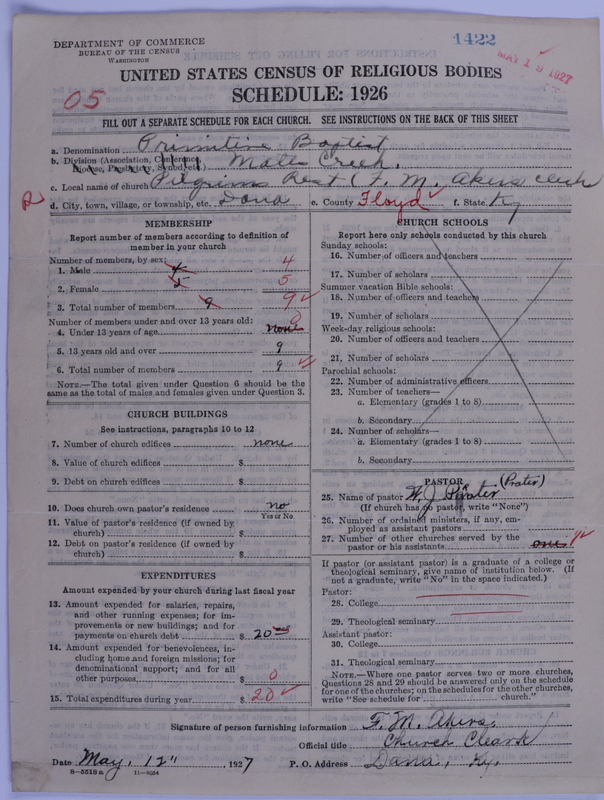 DEPARTMENT OF COMMERCE
BUREAU OF THE CENSUS
WASHINGTON
1422
UNITED STATES CENSUS OF RELIGIOUS BODIES
05
SCHEDULE: 1926
FILL OUT A SEPARATE SCHEDULE FOR EACH CHURCH. SEE INSTRUCTIONS ON THE BACK OF THIS SHEET
a. Denomination Primitive Baptist
b. Division (Association, Conference, Diocese, Presbytery, Synod, etc.) Mates Creek.
c. Local name of church Pilgrims Rest (F. M. Akers clerk
d. City, town, village, or township, etc. Dana e. County Floyd f. State Ky
MEMBERSHIP
Report number of members according to definition of
member in your church
Number of members, by sex:
1. Male 4 4
2. Female 5 5
3. Total number of members 9 9
Number of members under and over 13 years old:
4. Under 13 years of age none 0
5. 13 years old and over 9
6. Total number of members 9
NOTE.—The total given under Question 6 should be the
same as the total of males and females given under Question 3.
CHURCH BUILDINGS
See instructions, paragraphs 10 to 12
7. Number of church edifices none
8. Value of church edifices $
9. Debt on church edifices $
10. Does church own pastor's residence no
Yes or No
11. Value of pastor's residence (if owned by
church) $
12. Debt on pastor's residence (if owned by
church) $
EXPENDITURES
Amount expended by your church during last fiscal year
13. Amount expended for salaries, repairs,
and other running expenses; for im-
provements or new buildings; and for
payments on church debt $ 20
14. Amount expended for benevolences, in-
cluding home and foreign missions; for
denominational support; and for all
other purposes $ 0
15. Total expenditures during year $ 20
CHURCH SCHOOLS
Report here only schools conducted by this church
Sunday schools:
16. Number of officers and teachers
17. Number of scholars
Summer vacation Bible schools:
18. Number of officers and teachers
19. Number of scholars
Week-day religious schools:
20. Number of officers and teachers
21. Number of scholars
Parochial schools:
22. Number of administrative officers
23. Number of teachers—
a. Elementary (grades 1 to 8)
b. Secondary
24. Number of scholars—
a. Elementary (grades 1 to 8)
b. Secondary
PASTOR (Prater)
25. Name of pastor W. J. Prater
(If church has no pastor, write "None")
26. Number of ordained ministers, if any, em-
ployed as assistant pastors
27. Number of other churches served by the
pastor or his assistants one 1
If pastor (or assistant pastor) is a graduate of a college or
theological seminary, give name of institution below. (If
not a graduate, write "No" in the space indicated.)
Pastor:
28. College
29. Theological seminary
Assistant pastor:
30. College
31. Theological seminary
NOTE.—Where one pastor serves two or more churches,
Questions 28 and 29 should be answered only on the schedule
for one of the churches; on the schedules for the other churches,
write "See schedule for church."
Signature of person furnishing information F. M. Akers
Official title Church Cleark
Date May, 12" 1927 P. O. Address Dana, Ky.
8-5518 a 11-9054